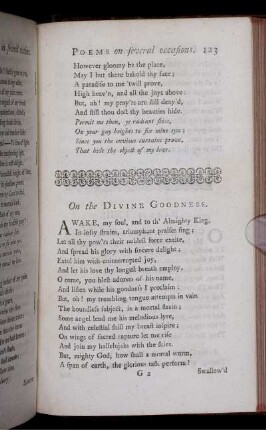 POEMS on several occasions. 123
However gloomy be the place,
May I but there behold thy face;
A paradise to me 'twill prove,
High heav'n, and all the joys above:
But, ah! my pray'rs are still deny'd,
And still thou dost thy beauties hide.
Permit me then, ye radiant stars,
On your gay heights to fix mine eyes;
Since you the envious curtains prove,
That hide the object of my love.
On the DIVINE GOODNESS.
AWAKE, my soul, and to th' Almighty King,
In lofty strains, triumphant praises sing;
Let all thy pow'rs their noblest force excite,
And spread his glory with sincere delight;
Extol him with uninterrupted joy,
And let his love thy longest breath employ.
O come, you blest adorers of his name,
And listen while his goodness I proclaim:
But, oh! my trembling tongue attempts in vain
The boundless subject, in a mortal strain:
Some angel lend me his melodious lyre,
And with celestial skill my breast inspire;
On wings of sacred rapture let me rise
And join my hallelujahs with the skies.
But, mighty God, how shall a mortal worm,
A span of earth, the glorious task perform?
G 2 Swallow'd